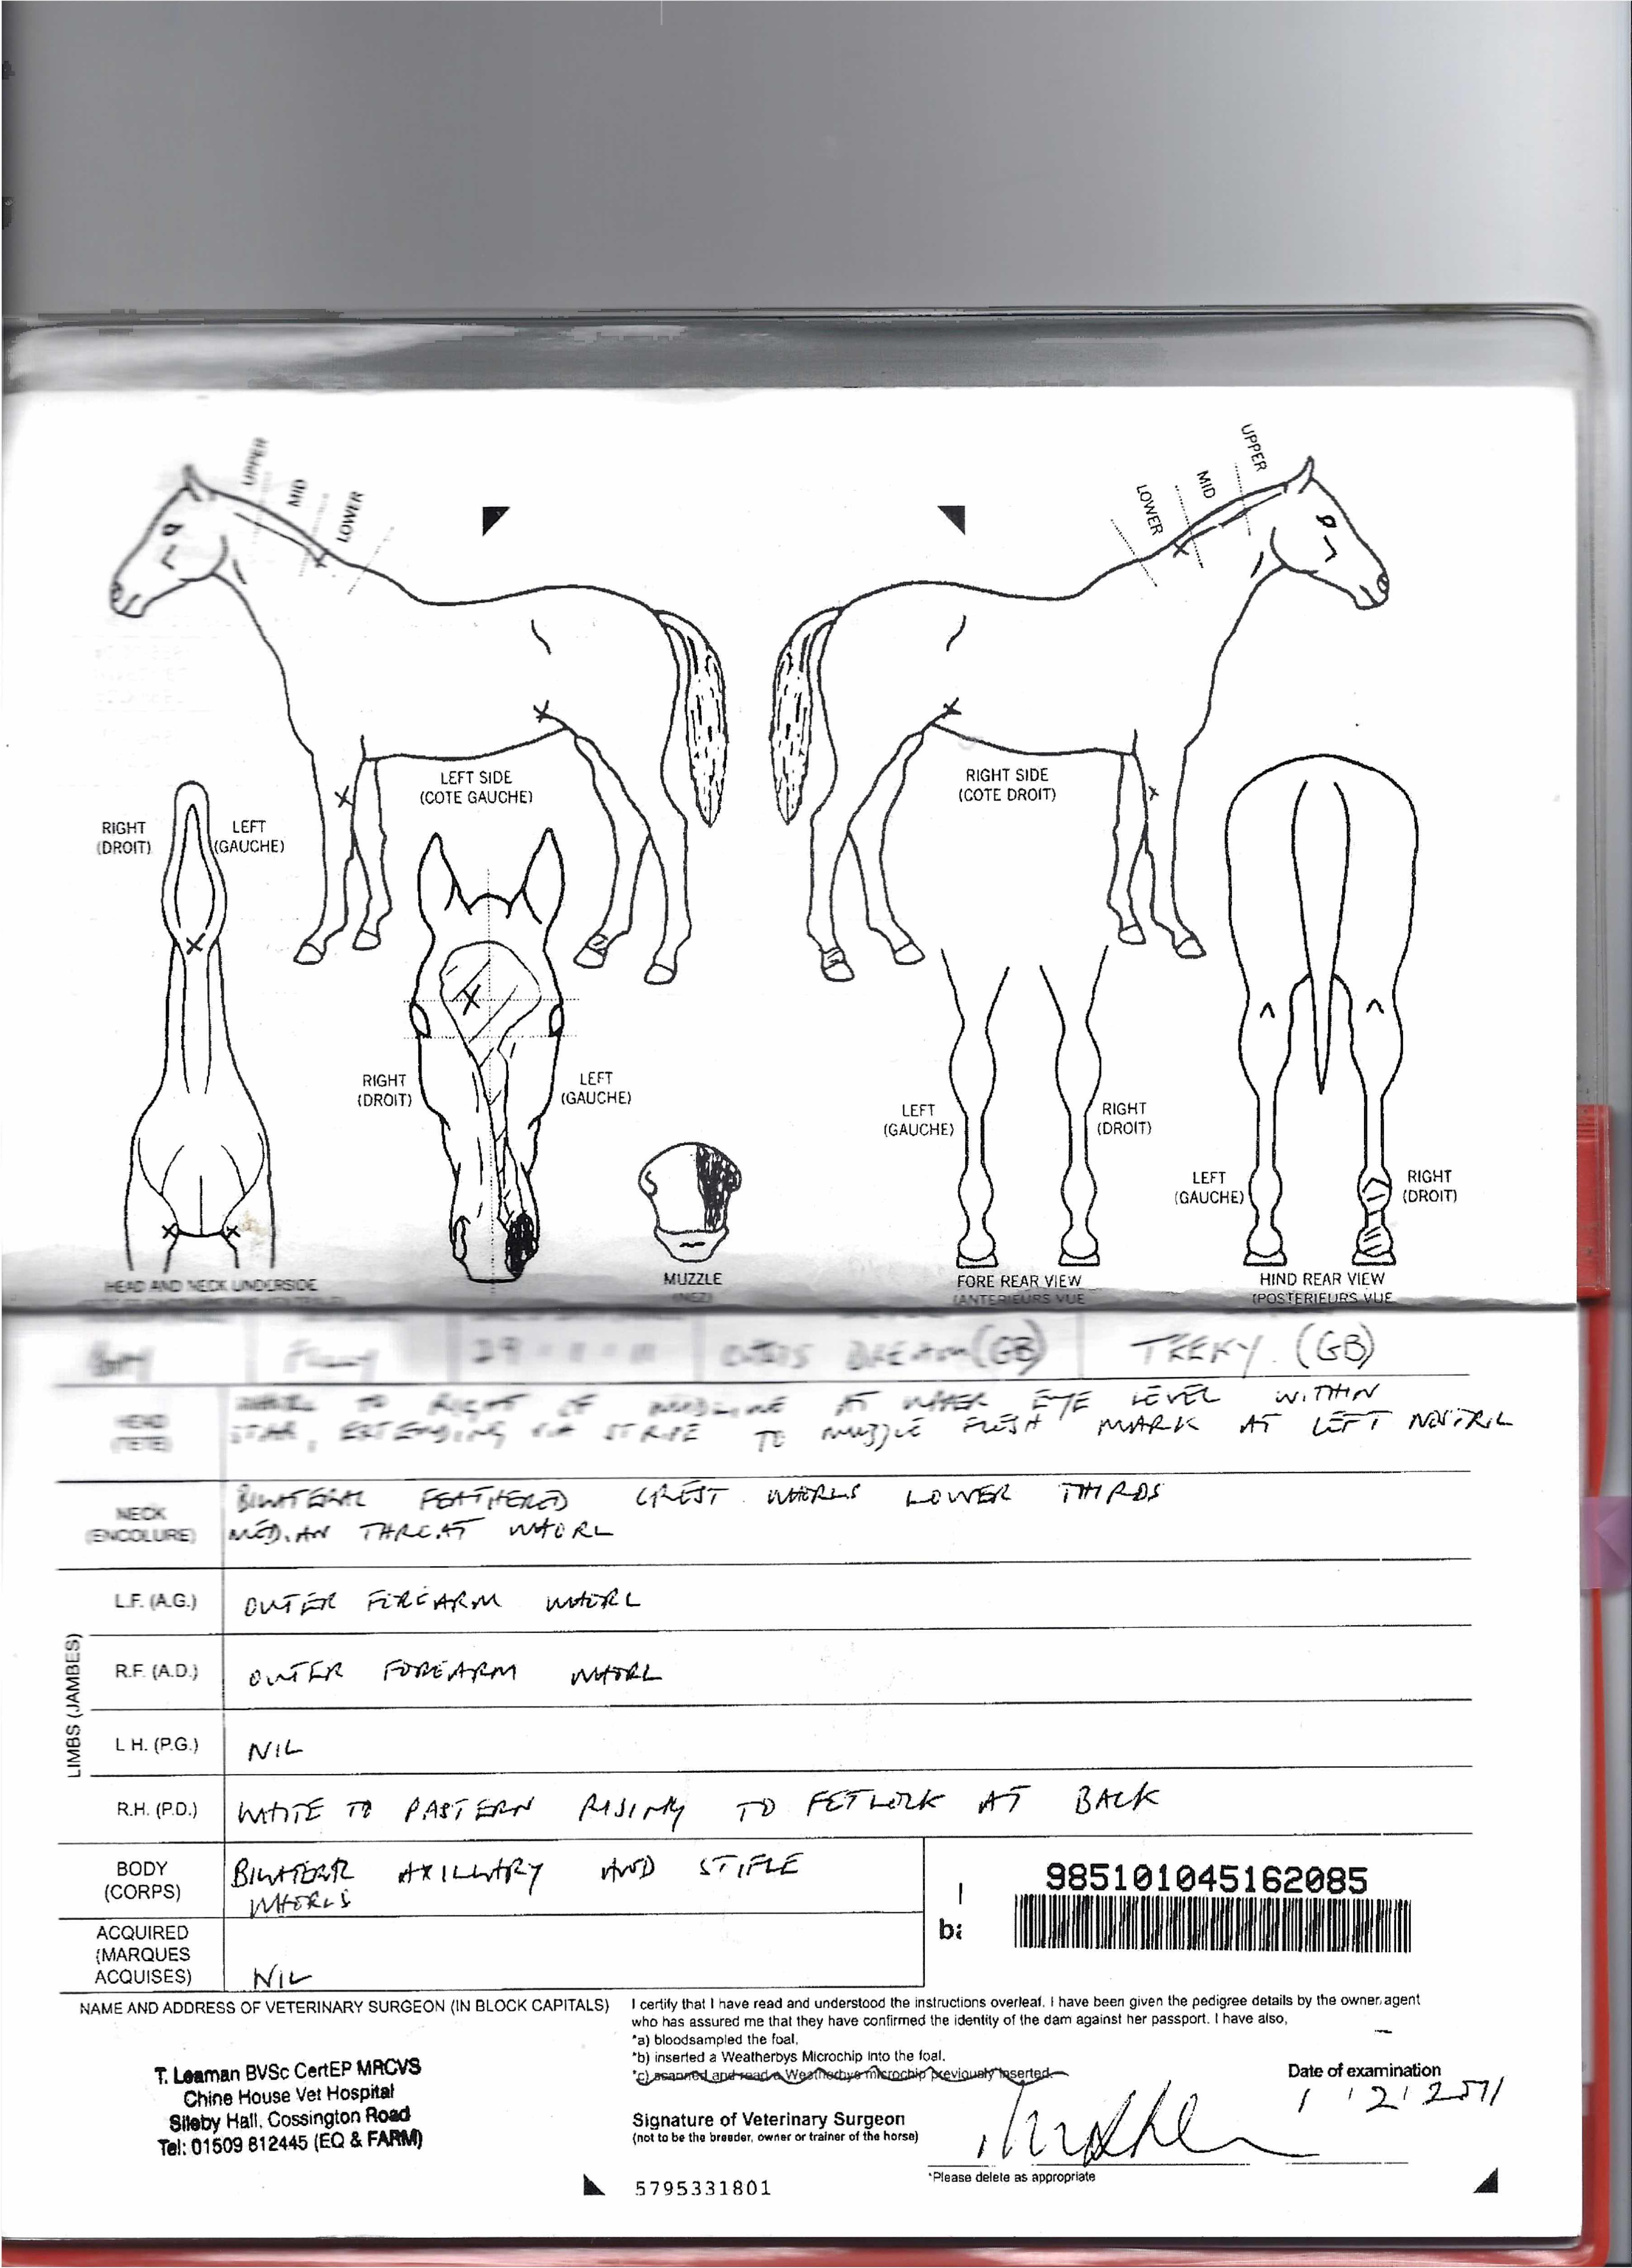 UPPER
MID
LOWER
UPPER
MID
LOWER
LEFT SIDE
(COTE GAUCHE)
RIGHT SIDE
(COTE DROIT)
RIGHT
(DROIT)
LEFT
(GAUCHE)
RIGHT
(DROIT)
LEFT
(GAUCHE)
LEFT
(GAUCHE)
RIGHT
(DROIT)
LEFT
(GAUCHE)
RIGHT
(DROIT)
HEAD AND NECK UNDERSIDE
MUZZLE
(NEZ)
FORE REAR VIEW
(ANTERIEURS VUE
HIND REAR VIEW
(POSTERIEURS VUE
FILLY 29 DREAM (GB) TEEKY. (GB)
HEAD
(TETE)
WHORL TO RIGHT OF MIDLINE AT UPPER EYE LEVEL WITHIN
STAR, EXTENDING VIA STRIPE TO MUZZLE FLESH MARK AT LEFT NOSTRIL
NECK
(ENCOLURE)
BILATERAL FEATHERED CREST WHORLS LOWER THIRDS
MEDIAN THROAT WHORL
LIMBS (JAMBES)
L.F. (A.G.) OUTER FOREARM WHORL
R.F. (A.D.) OUTER FOREARM WHORL
L H. (P.G.) NIL
R.H. (P.D.) WHITE TO PASTERN RISING TO FETLOCK AT BACK
BODY
(CORPS)
BILATERAL AXILLARY AND STIFLE
WHORLS
985101045162085
ACQUIRED
(MARQUES
ACQUISES)
NIL
NAME AND ADDRESS OF VETERINARY SURGEON (IN BLOCK CAPITALS)
T. Leaman BVSc CertEP MRCVS
Chine House Vet Hospital
Sileby Hall, Cossington Road
Tel: 01509 812445 (EQ & FARM)
I certify that I have read and understood the instructions overleaf. I have been given the pedigree details by the owner, agent
who has assured me that they have confirmed the identity of the dam against her passport. I have also,
*a) bloodsampled the foal.
*b) inserted a Weatherbys Microchip Into the foal.
*c) scanned and read a Weatherbys microchip previously inserted
Date of examination
Signature of Veterinary Surgeon
(not to be the breeder, owner or trainer of the horse)
*Please delete as appropriate
5795331801